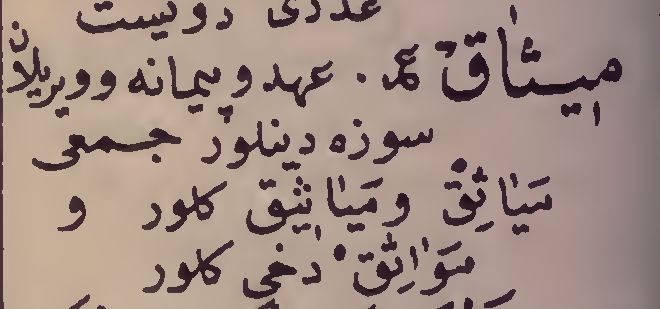 عددی دویست
مِيثٰاقْ عم. عهد و پیمانه و ویریلان
سوزه دینلور جمعی
مَيَاثِقْ و مَيٰاثٖيق کلور و
مَوٰاثِقْ دخی کلور